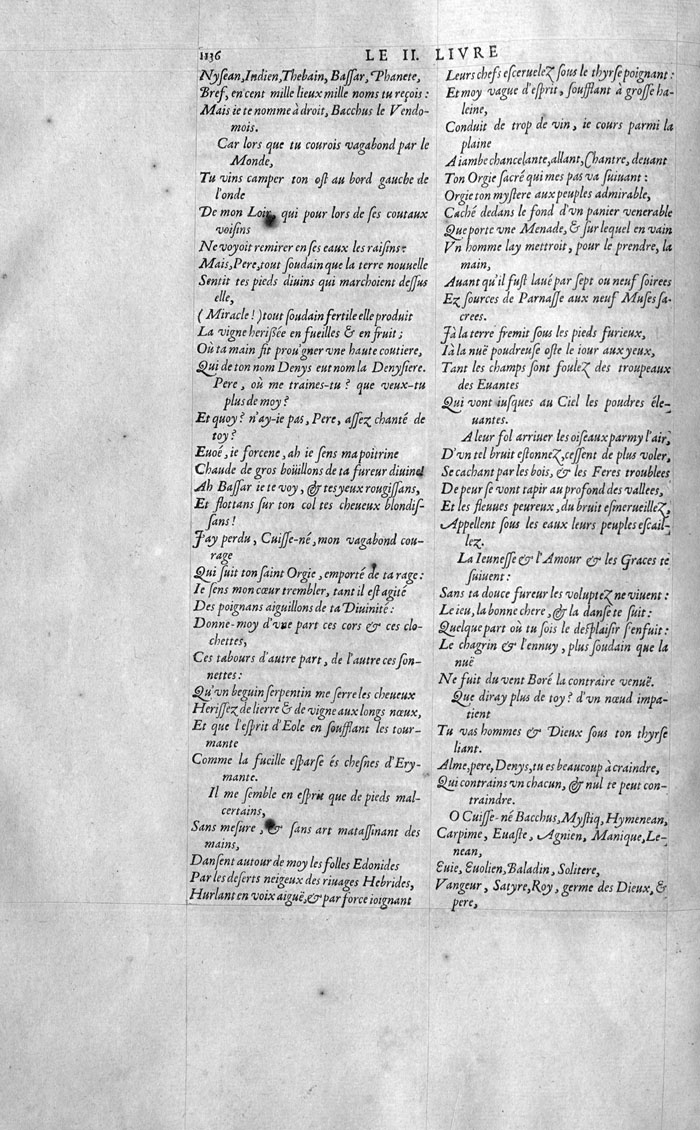 1136
LE II. LIVRE
Nyſean, Indien, Thebain, Baſſar, Phanete,
Bref, en cent mille lieux mille noms tu reçois :
Mais ie te nomme à droit, Bacchus le Vendo-
mois.
Car lors que tu courois vagabond par le
Monde,
Tu vins camper ton oſt au bord gauche de
l'onde
De mon Loir, qui pour lors de ſes coutaux
voiſins
Ne voyoit remirer en ſes eaux les raiſins:
Mais, Pere, tout ſoudain que la terre nouuelle
Sentit tes pieds diuins qui marchoient deſſus
elle,
(Miracle!) tout ſoudain fertile elle produit
La vigne heriſſée en fueilles & en fruit ;
Où ta main fit prouigner vne haute coutiere,
Qui de ton nom Denys eut nom la Denyſiere.
Pere, où me traines-tu? que veux-tu
plus de moy?
Et quoy? n'ay-ie pas, Pere, aſſez chanté de
toy?
Euoé, ie forcene, ah ie ſens ma poitrine
Chaude de gros boüillons de ta fureur diuine!
Ah Baſſar ie te voy, & tes yeux rougiſſans,
Et flottans ſur ton col tes cheueux blondiſ-
ſans!
J'ay perdu, Cuiſſe-né, mon vagabond cou-
rage
Qui ſuit ton ſaint Orgie, emporté de ta rage:
Ie ſens mon cœur trembler, tant il eſt agité
Des poignans aiguillons de ta Diuinité:
Donne-moy d'vne part ces cors & ces clo-
chettes,
Ces tabours d'autre part, de l'autre ces ſon-
nettes:
Qu'vn beguin ſerpentin me ſerre les cheueux
Heriſſez de lierre & de vigne aux longs nœux,
Et que l'eſprit d'Eole en ſoufflant les tour-
mante
Comme la fueille eſparſe és cheſnes d'Ery-
mante.
Il me ſemble en eſprit que de pieds mal-
certains,
Sans meſure, & ſans art mataſſinant des
mains,
Danſent autour de moy les folles Edonides
Par les deſerts neigeux des riuages Hebrides,
Hurlant en voix aiguë, & par force ioignant
Leurs chefs eſceruelez ſous le thyrſe poignant :
Et moy vague d'eſprit, ſoufflant à groſſe ha-
leine,
Conduit de trop de vin, ie cours parmi la
plaine
A iambe chancelante, allant, Chantre, deuant
Ton Orgie ſacré qui mes pas va ſuiuant :
Orgie ton myſtere aux peuples admirable,
Caché dedans le fond d'vn panier venerable
Que porte vne Menade, & ſur lequel en vain
Vn homme lay mettroit, pour le prendre, la
main,
Auant qu'il fuſt laué par ſept ou neuf ſoirees
Ez ſources de Parnaſſe aux neuf Muſes ſa-
crees.
Jà la terre fremit ſous les pieds furieux,
Ià la nuë poudreuſe oſte le iour aux yeux,
Tant les champs ſont foulez des troupeaux
des Euantes
Qui vont iuſques au Ciel les poudres éle-
uantes.
A leur fol arriuer les oiſeaux parmy l'air,
D'vn tel bruit eſtonnez, ceſſent de plus voler,
Se cachant par les bois, & les Feres troublees
De peur ſe vont tapir au profond des vallees,
Et les fleuues peureux, du bruit eſmerueillez,
Appellent ſous les eaux leurs peuples eſcail-
lez.
La Ieuneſſe & l'Amour & les Graces te
ſuiuent :
Sans ta douce fureur les voluptez ne viuent :
Le ieu, la bonne chere, & la danſe te ſuit :
Quelque part où tu ſois le deſplaiſir s'enfuit :
Le chagrin & l'ennuy, plus ſoudain que la
nuë
Ne fuit du vent Boré la contraire venuë.
Que diray plus de toy? d'vn nœud impa-
tient
Tu vas hommes & Dieux ſous ton thyrſe
liant.
Alme, pere, Denys, tu es beaucoup à craindre,
Qui contrains vn chacun, & nul te peut con-
traindre.
O Cuiſſe-né Bacchus, Myſtiq, Hymenean,
Carpime, Euaſte, Agnien, Manique, Le-
nean,
Euie, Euolien, Baladin, Solitere,
Vangeur, Satyre, Roy, germe des Dieux, &
pere,